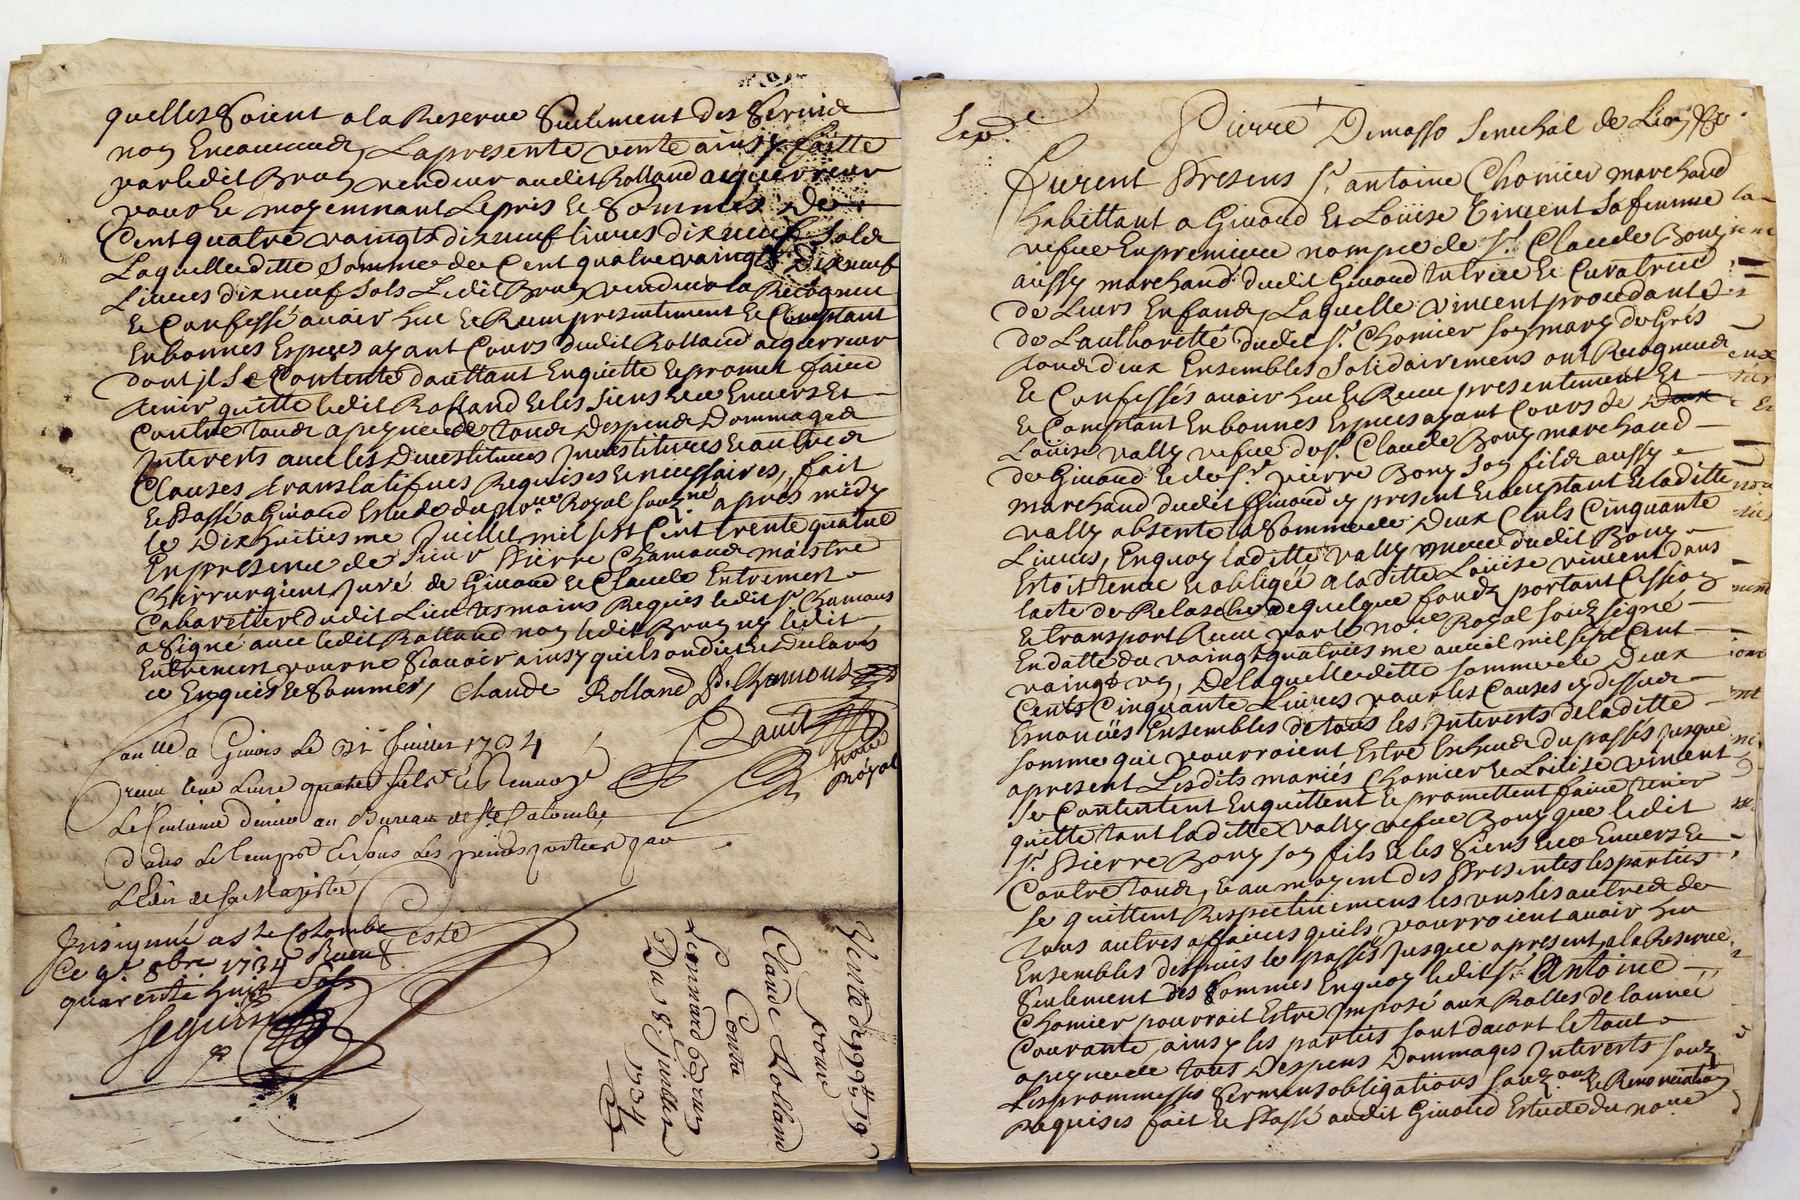 quelles soient a la Reserve Seulement des Servis
non Encourus, La presente vente ainsy faitte
par ledit Brun vendeur audit Rolland aquerreur
pour le moyennant Le pris & Somme De
Cent quatre vaingts dixneuf livres dixneuf Solds
Laquelleditte Somme de Cent quatre vaingts Dixneuf
Livres dixneuf Sols Ledit Brun vendeur a Recogneu
& Confessé avoir heu & Receu presentement & Comptant
En bonnes Especes ayant Cours dudit Rolland aquerreur
dont jl Se Contente d'auttant En quitte & promet faire
tenir quitte ledit Rolland & les Siens Envers Et
Contre tous a peyne de tous Despens Dommages
Interests avec les Devestitures Investitures & autres
Clauses translatifves Requises & necessaires, fait
& Passé a Givord Estude du no.re Royal sousné apres midy
le Dix huitiesme Juillet mil sept Cent trente quatre
En presence de Sieur Pierre Chamous maistre
Chirrurgient Juré de Givord & Claude Entremont
Cabarettier dudit Lieu tesmoins Requis ledit Sr Chamous
a Signé avec ledit Rolland non ledit Brun ny ledit
Entremont pour ne Scavoir ainsy quils ont dit & Declaré
de Enquis & Sommés, Claude Rolland P. Chamous
no.re
Royal
a Givors Le 31e Juillet 1734
receu une Livre quatre sols & Renvoyé
Le Centieme denier au Bureau de Ste Colombe
Dans Le temps & sous Les peines portées par
LEdit de Sa Majesté
Insignué a Ste Colombe
Ce 9e 8bre 1734 Receu
quarente huit Sols
Seguin
Vente de 199ll 19s
pour
Claude Rolland
Contre
Leonnard Brun
Du 18e Juillet
1734
Exp.de
Pierre Demasso Senechal de Lion
Furent Presens Sr antoine Chomier marchand
habittant a Givord & Loüise Vincent Sa femme
vefve En premiere nompce de Sr Claude Bony
aussy marchand dudit Givord tutrice & Curatrice
de Leurs Enfans, Laquelle Vincent procedante
de Lauthoritté dudit Sr Chomier Son mary de Gré
tous deux Ensembles Solidairement ont Recogneus
& Confessés avoir heu & Receu presentement Et
& Comptant En bonnes Especes ayant Cours de
Loüise vally vefve de Sr Claude Bony marchand
de Givord & de Sr Pierre Bony Son fils aussy
marchand dudit Givord cy present & acceptant & laditte
vally absente la Somme de Deux Cents Cinquante
Livres, En quoy laditte vally vefve dudit Bony
Estoit tenue & obligée a laditte Loüise vincent dans
lacte de Relasche de quelque fonds portant Cession
& transport Receu par le no.re Royal Sousigné
En datte du vaingt quatriesme avril mil Sept Cent
vaingt un, De laquelleditte Somme de Deux
Cents Cinquante Livres pour les Causes cy dessus
Enoncées Ensembles de tous les Interests de laditte
Somme qui pourroient Estre Escheus du passé jusque
a present Lesdits mariés Chomier & Loüise vincent
Se Contentent En quittent & promettent faire tenir
quitte tant laditte vally vefve Bony que ledit
Sr Pierre Bony Son fils & les Siens Envers &
Contre tous, & au moyent des Presentes les parties
Se quittent Respectivement les uns les autres de
tous autres affaires quils pourroient avoir heu
Ensembles despuis le passé Jusque a present, a la Reserve
Seulement des Sommes En quoy ledit Sr Antoine
Chomier pourroit Estre Imposé aux Rolles de lannée
Courante, ainsy les parties Sont dacort le tout
a peyne de tous Despens Dommages Interests Sous
Les prommesses Sermens obligations & Renonciations
Requises fait & Passé audit Givord Estude du no.re